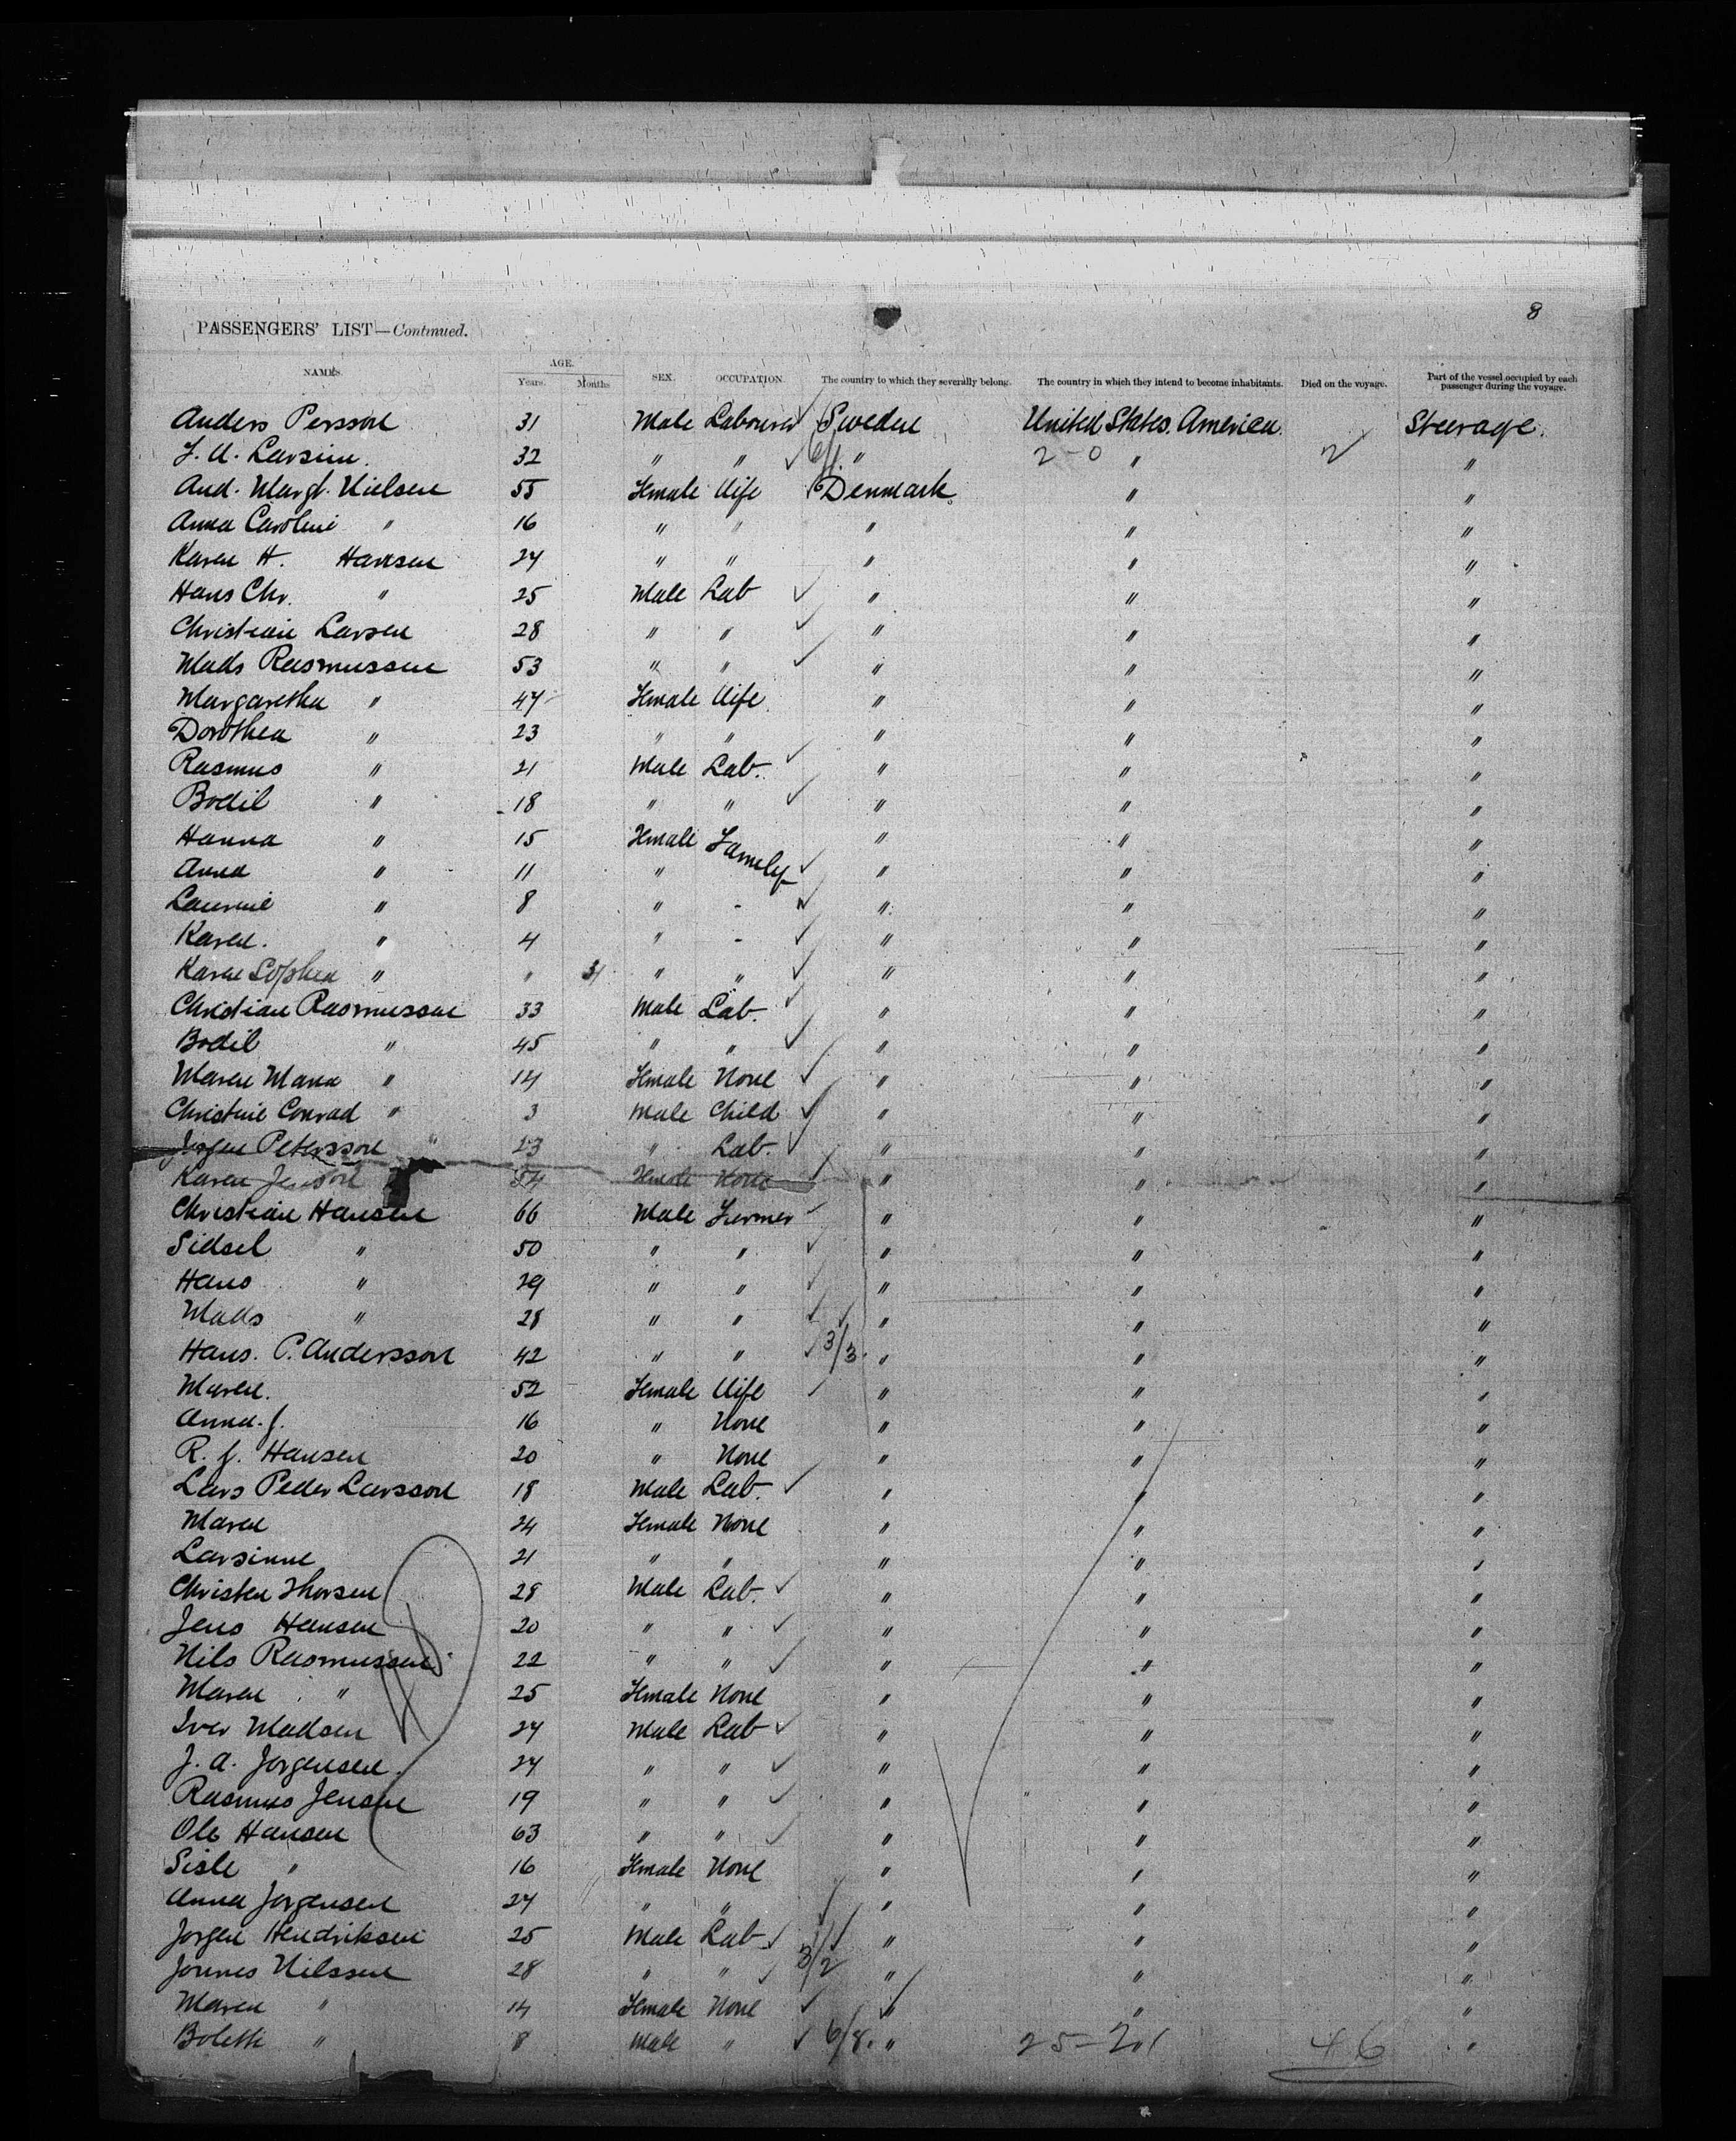 8
PASSENGERS' LIST—Continued.
NAMES. AGE. Years. Months SEX. OCCUPATION. The country to which they severally belong. The country in which they intend to become inhabitants. Died on the voyage. Part of the vessel occupied by each passenger during the voyage.
Anders Persson 31 Male Labourer Sweden United States America. Steerage.
J. A. Larsine. 32 " " " 2-0 " 2 "
And. Margt. Nielsen 55 Female Wife Denmark. " "
Anna Caroline " 16 " " " " "
Karen H. Hansen 24 " " " " "
Hans Chr. " 25 Male Lab " " "
Christian Larsen 28 " " " " "
Mads Rasmussen 53 " " " " "
Margaretha " 47 Female Wife " " "
Dorothea " 23 " " " " "
Rasmus " 21 Male Lab. " " "
Bodil " 18 " " " " "
Hanna " 15 Female Family " " "
Anna " 11 " " " "
Laurine " 8 " - " " "
Karen. " 4 " - " " "
Karen Sophea " " " " " " "
Christian Rasmussen 33 Male Lab. " " "
Bodil " 45 " " " " "
Maren Maria " 14 Female None " " "
Christine Conrad " 3 Male Child " " "
Jorgen Petersson " 23 " Lab. " " "
Karen Jenson 54 Female None " " "
Christian Hansen 66 Male Farmer " " "
Sidsel " 50 " " " " "
Hans " 29 " " " " "
Mads " 28 " " " " "
Hans. P. Andersson 42 " " 3/3 " " "
Maren. 52 Female Wife " " "
Anna. J. 16 " None " " "
R. J. Hansen 20 " None " " "
Lars Peder Larsson 18 Male Lab. " " "
Maren 24 Female None " " "
Larsinne 21 " " " " "
Christen Thorsen 28 Male Lab. " " "
Jens Hansen 20 " " " " "
Nils Rasmussen 22 " " " " "
Maren " 25 Female None " " "
Iver Madsen 24 Male Lab " " "
J. A. Jorgensen. 24 " " " " "
Rasmus Jensen 19 " " " " "
Ole Hansen 63 " " " " "
Sisle " 16 Female None " " "
Anna Jorgensen 24 " " " " "
Jorgen Hendriksen 25 Male Lab " " "
Jonnes Nilssen 28 " " 3/2 " " "
Maren " 14 Female None " " "
Boleth " 8 Male " 6/8. " 25-21 46 "